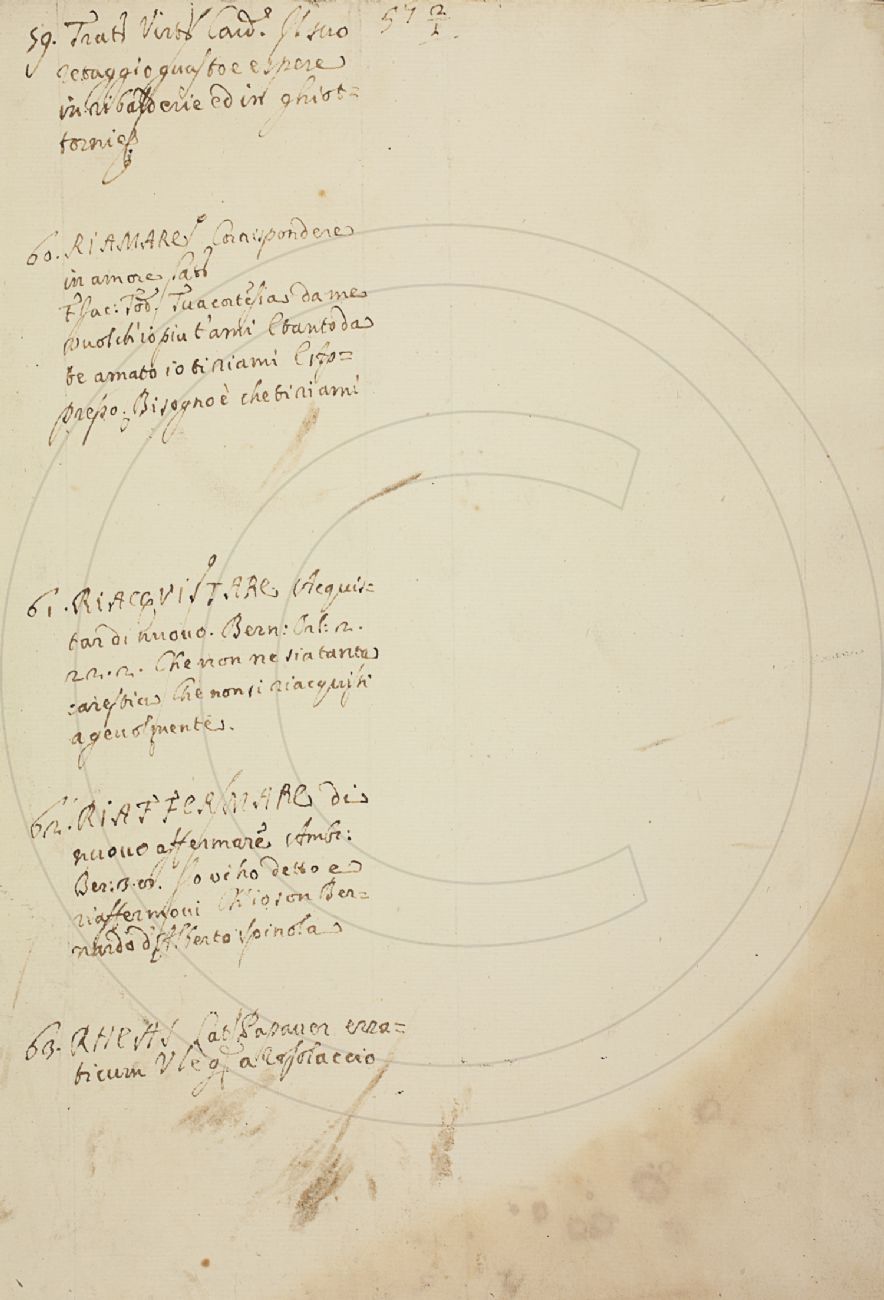 59. Tratt Virt Card. Il suo 57 2/1
retaggio guasto e e spere
in ribalderie ed in ghiot=
tornie
60. RIAMARE Corrispondere
in amore Lat
F Jac: Tod. Tua cortesia da me
vuol ch'io piu t'ami E tanto da
te amato io ti riami E
Bisogno è che ti riami
61. RIACQVISTARE Acquis=
tar di nuovo. Bern: Orl: 2.
22.2. Che non ne sia tanta
carestia Che non si riacquisti
agevolmente.
62. RIAFFERMARE di
nuovo affermare Amb:
Ber: 3. Io vi ho detto e
riaffermovi Ch'io son Ber=
nardo d'Alberto Spinola
63. RHEAS Lat Papauer erra=
ticum V leg a Rosolaccio